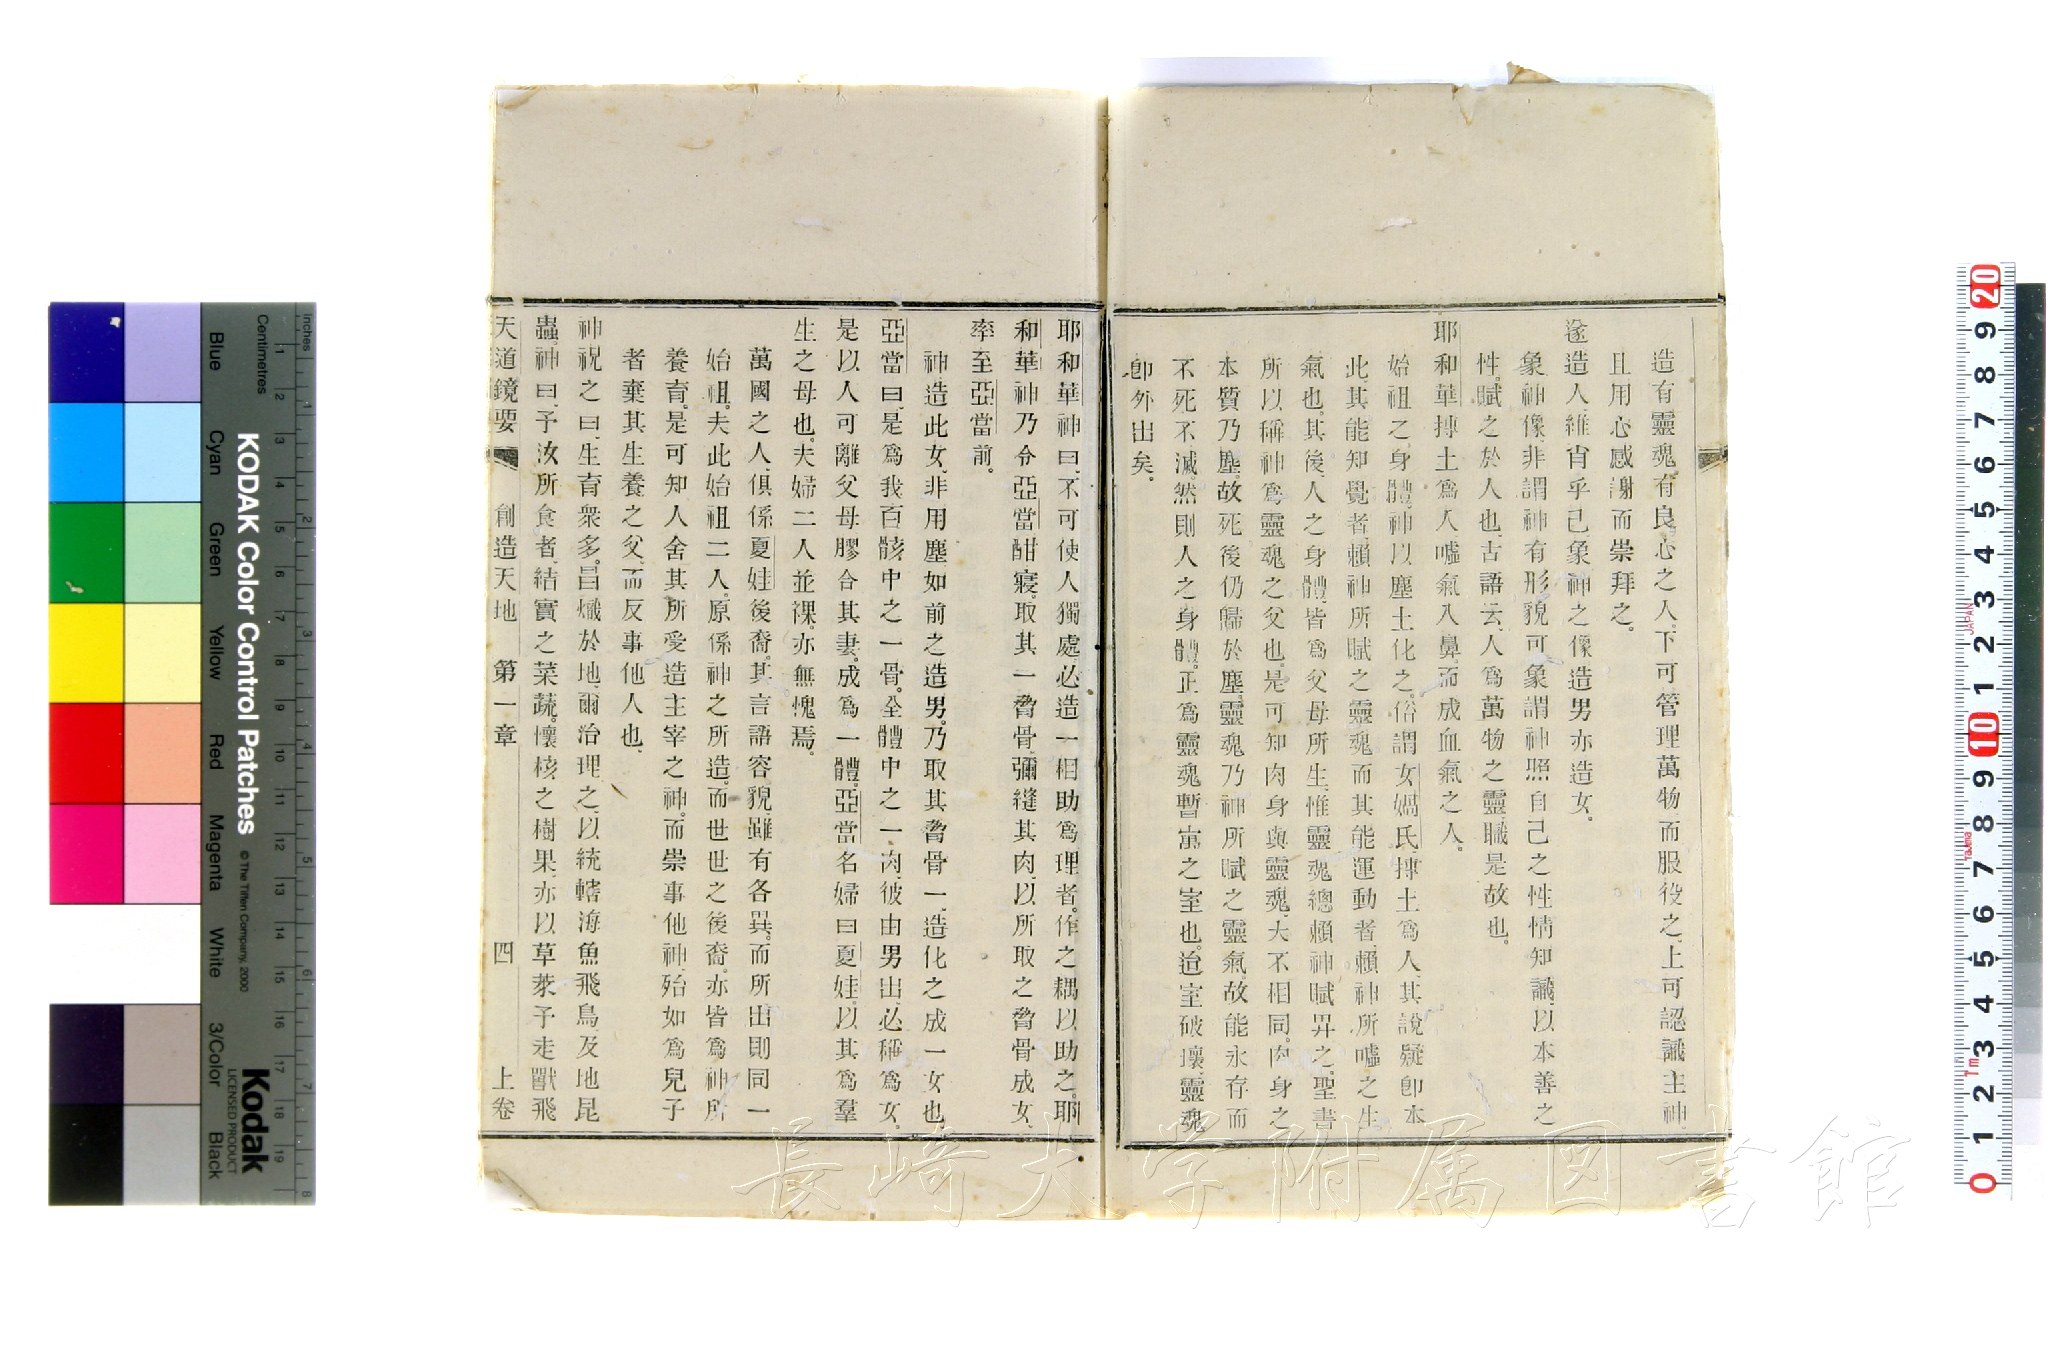 造有靈魂、有良心之人、下可管理萬物、而服役之、上可認識主神、
且用心感謝而崇拜之。
遂造人、維肖乎己、象神之像、造男亦造女。
象神像、非謂神有形貌可象、謂神照自己之性情知識、以本善之
性、賦之於人也、古語云、人爲萬物之靈、職是故也。
耶和華摶土爲人、噓氣入鼻、而成血氣之人。
始祖之身體、神以塵土化之、俗謂女媧氏、摶土爲人、其說疑卽本
此、其能知覺者、賴神所賦之靈魂、而其能運動者、賴神所噓之生
氣也、其後、人之身體、皆爲父母所生、惟靈魂總賴神賦畀之、聖書
所以稱神爲靈魂之父也、是可知肉身與靈魂、大不相同、肉身之
本質乃塵、故死後仍歸於塵、靈魂乃神所賦之靈氣、故能永存而
不死不滅、然則人之身體、正爲靈魂暫寓之室也、迨室破壞、靈魂
卽外出矣。
耶和華神曰、不可使人獨處、必造一相助爲理者。作之耦以助之。耶
和華神乃令亞當酣寢、取其一脅骨、彌縫其肉、以所取之脅骨成女、
率至亞當前。
神造此女、非用塵如前之造男、乃取其脅骨一、造化之成一女也、
亞當曰、是爲我百骸中之一骨。全體中之一肉、彼由男出、必稱爲女。
是以人可離父母、膠合其妻、成爲一體。亞當名婦曰夏娃、以其爲羣
生之母也。夫婦二人並裸、亦無愧焉。
萬國之人、俱係夏娃後裔。其言語容貌、雖有各異。而所出則同一
始祖。夫此始祖二人、原係神之所造、而世世之後裔、亦皆爲神所
養育、是可知人舍其所愛造主宰之神、而崇事他神、殆如爲兒子
者棄其生養之父、而反事他人也、
神祝之曰、生育衆多、昌熾於地、爾治理之、以統轄海魚飛鳥及地昆
蟲神曰、予汝所食者、結實之菜蔬、懷核之樹果、亦以草萊予走獸飛
天道鏡要 創造天地 第一章 四 上卷
長崎大学附属図書館
KODAK Color Control Patches © The Tiffen Company, 2000
Kodak LICENSED PRODUCT
Inches 1 2 3 4 5 6 7 8
Centimetres 1 2 3 4 5 6 7 8 9 10 11 12 13 14 15 16 17 18 19
Blue Cyan Green Yellow Red Magenta White 3/Color Black
0 1 2 3 4 5 6 7 8 9 10 1 2 3 4 5 6 7 8 9 20
JAPAN